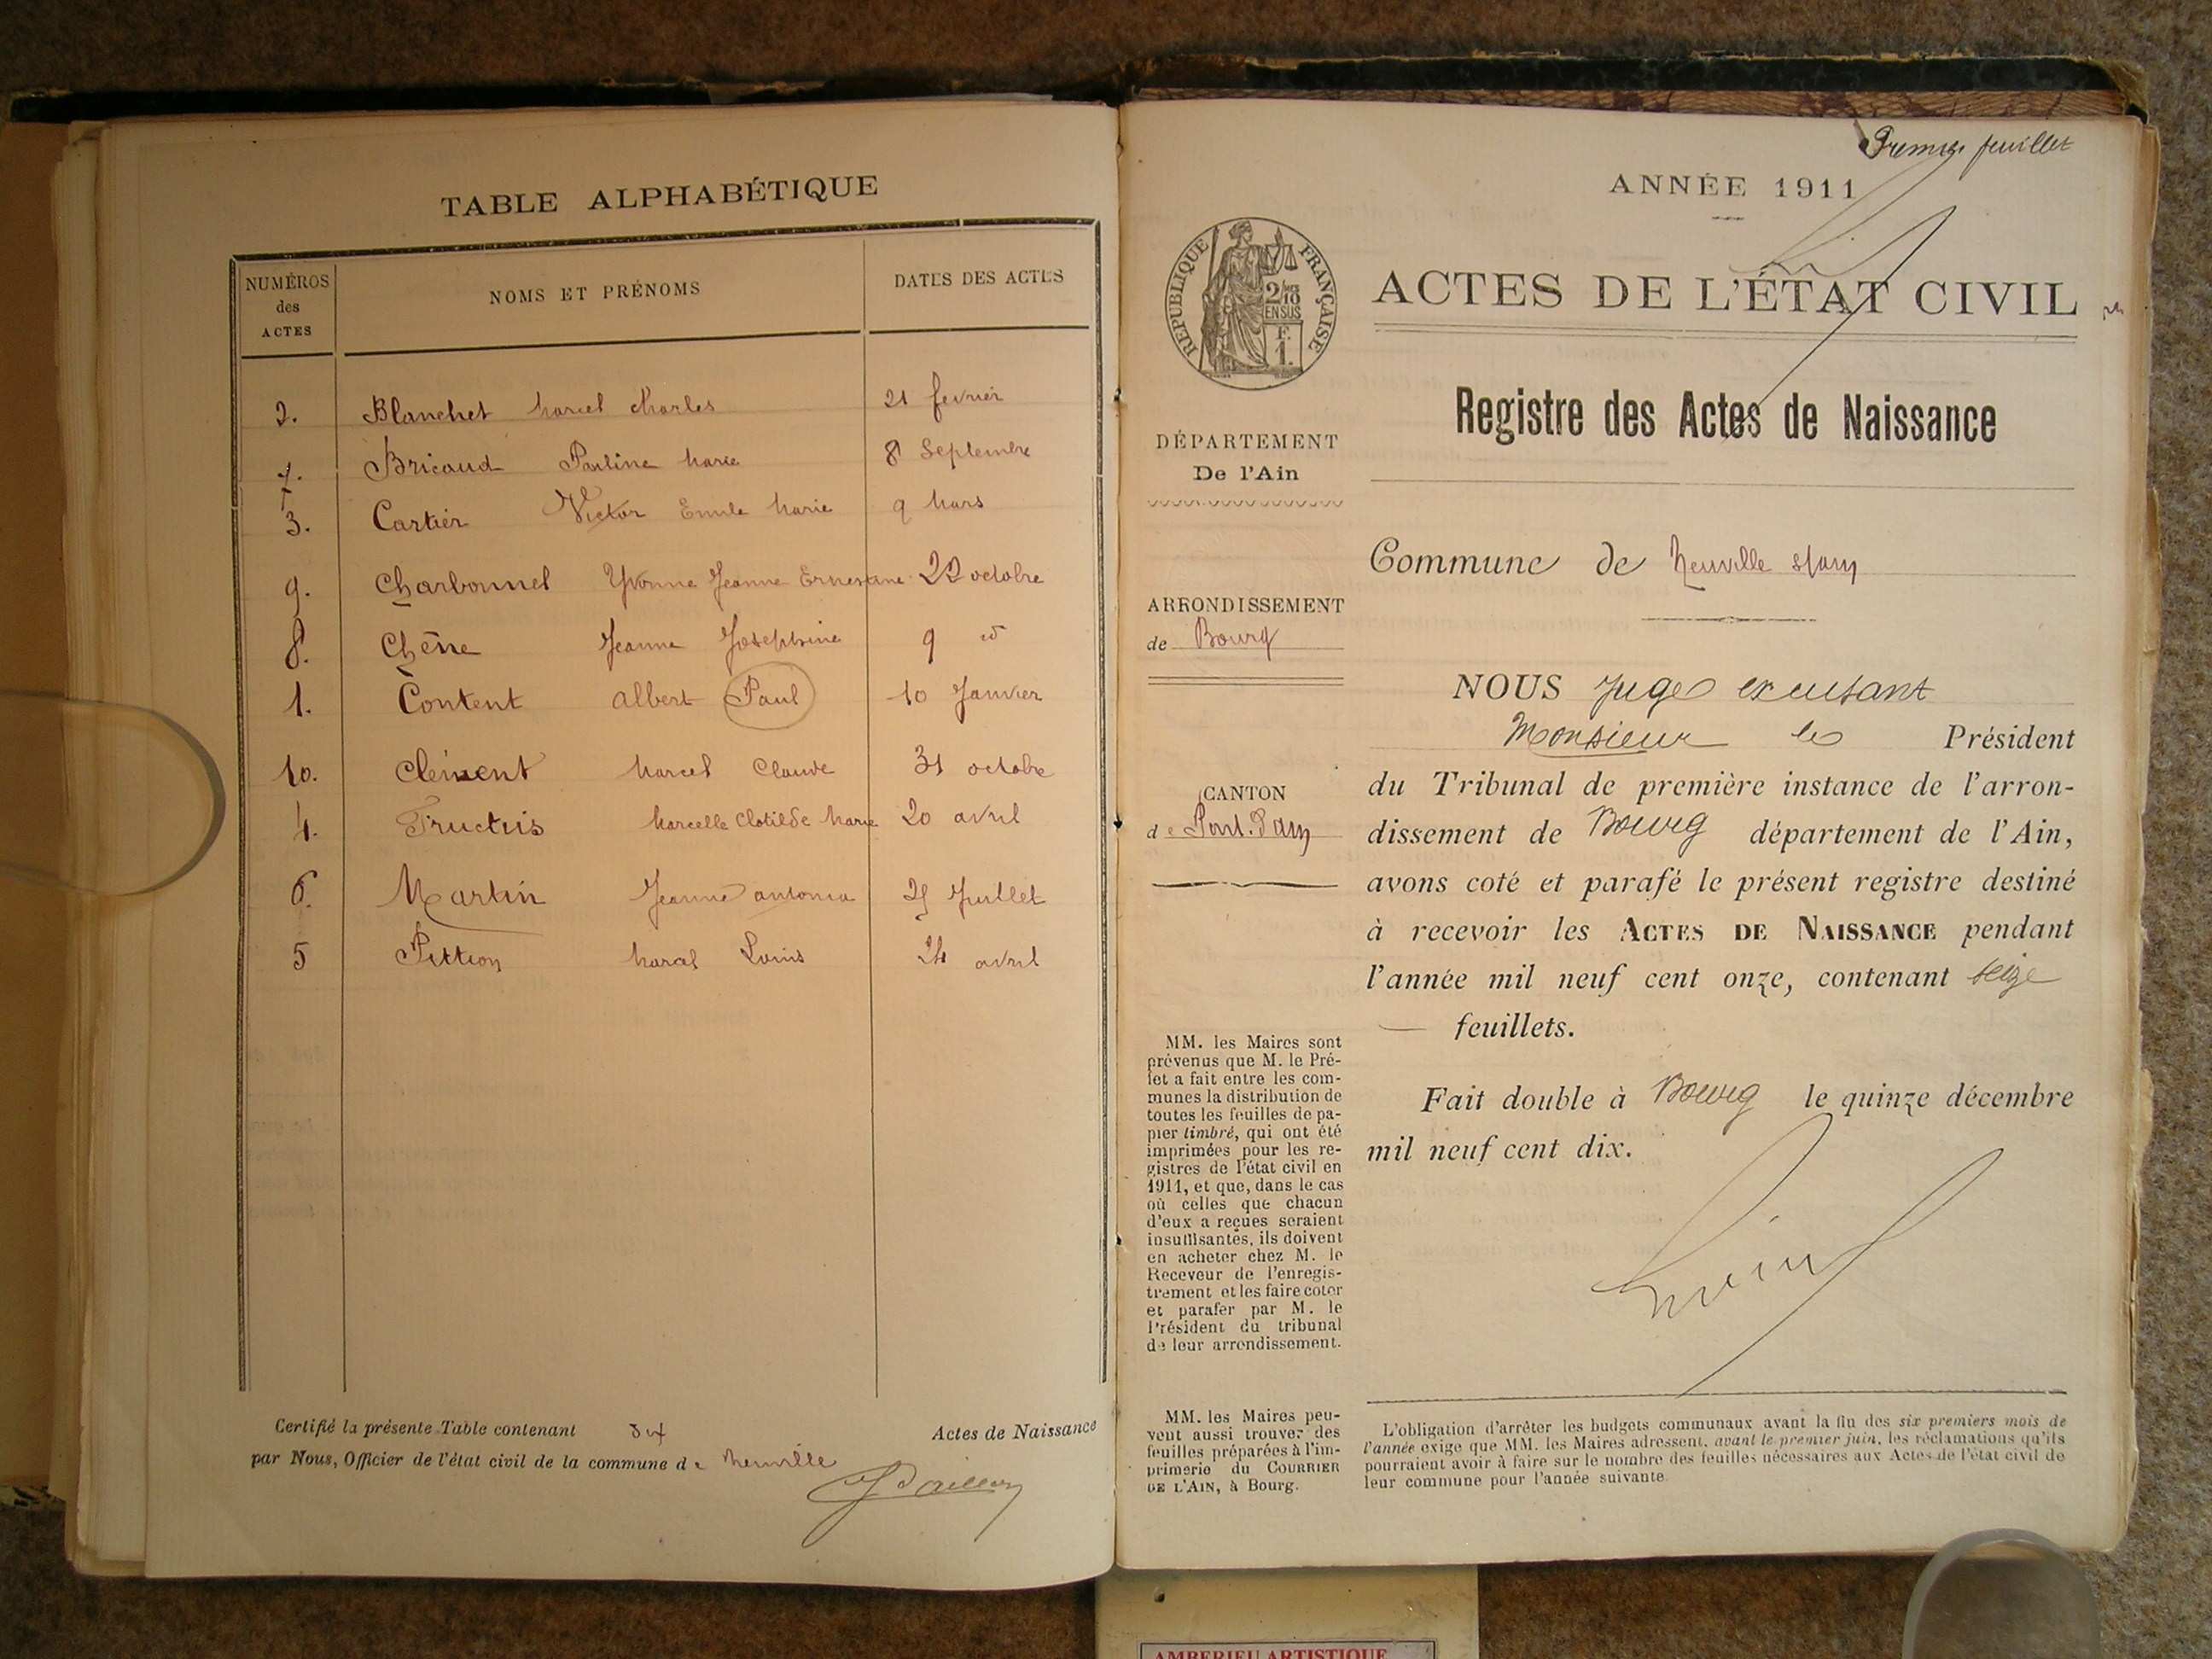 TABLE ALPHABÉTIQUE
NUMÉROS des ACTES
NOMS ET PRÉNOMS
DATES DES ACTES
2. Blanchet Marcel Charles 21 fevrier
7. Bricaud Pauline Marie 8 Septembre
3. Cartier Victor Emile Marie 9 Mars
9. Charbonnel Yvonne Jeanne Ernestine 22 octobre
8. Chêne Jeanne Joséphine 9 id
1. Content Albert Paul 10 Janvier
10. Clément Marcel Claude 31 octobre
4. Fructus Marcelle Clotilde Marie 20 avril
6. Martin Jeanne antonia Juillet
5 Pittion Marcel Louis 24 avril
Certifié la présente Table contenant dix Actes de Naissance
par Nous, Officier de l'état civil de la commune de Neuville
Premier feuillet
ANNÉE 1911
RÉPUBLIQUE FRANÇAISE
2/10
EN SUS
F.
1.
ACTES DE L'ÉTAT CIVIL
Registre des Actes de Naissance
DÉPARTEMENT
De l'Ain
Commune de Neuville s/ain
ARRONDISSEMENT
de Bourg
CANTON
de Pont-d'ain
NOUS Juge excusant
Monsieur le Président
du Tribunal de première instance de l'arron-
dissement de Bourg département de l'Ain,
avons coté et parafé le présent registre destiné
à recevoir les ACTES DE NAISSANCE pendant
l'année mil neuf cent onze, contenant seize
feuillets.
Fait double à Bourg le quinze décembre
mil neuf cent dix.
MM. les Maires sont
prévenus que M. le Pré-
fet a fait entre les com-
munes la distribution de
toutes les feuilles de pa-
pier timbré, qui ont été
imprimées pour les re-
gistres de l'état civil en
1911, et que, dans le cas
où celles que chacun
d'eux a reçues seraient
insuffisantes, ils doivent
en acheter chez M. le
Receveur de l'enregis-
trement et les faire coter
et parafer par M. le
Président du tribunal
de leur arrondissement.
MM. les Maires peu-
vent aussi trouver des
feuilles préparées à l'im-
primerie du COURRIER
DE L'AIN, à Bourg.
L'obligation d'arrêter les budgets communaux avant la fin des six premiers mois de
l'année exige que MM. les Maires adressent, avant le premier juin, les réclamations qu'ils
pourraient avoir à faire sur le nombre des feuilles nécessaires aux Actes de l'état civil de
leur commune pour l'année suivante.
AMBERIEU ARTISTIQUE